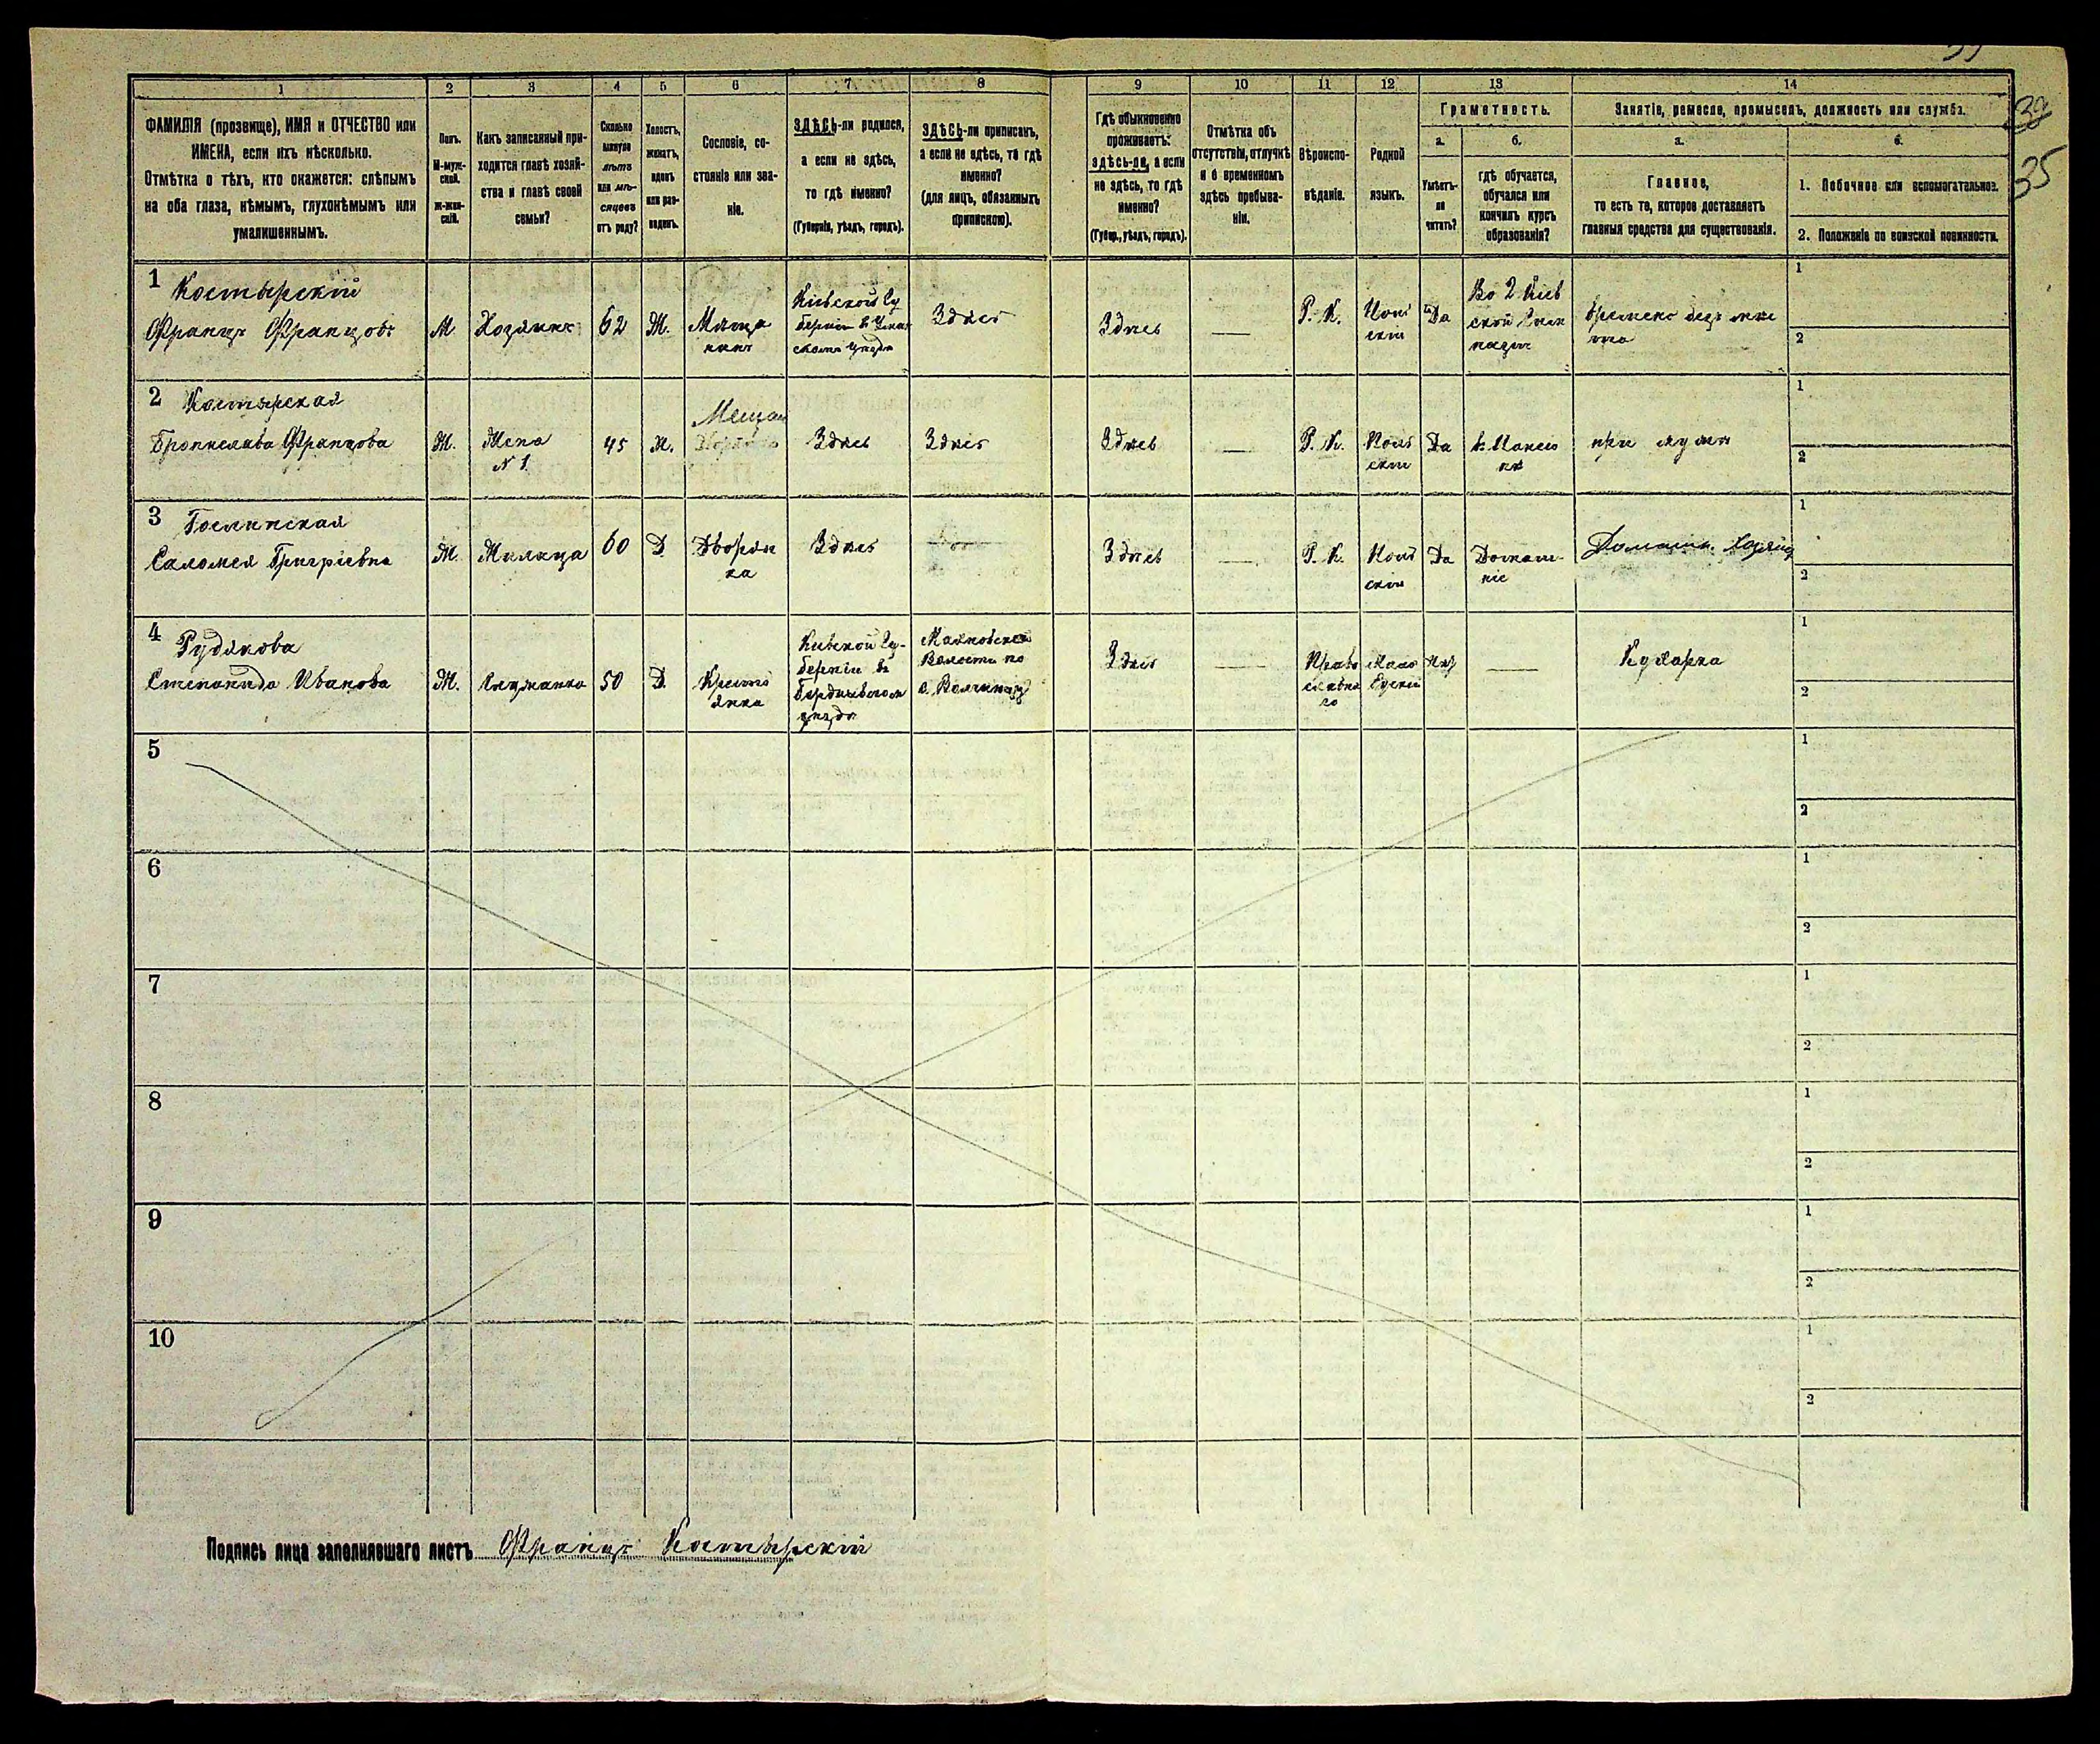 1 2 3 4 5 6 7 8 9 10 11 12 13 14
ФАМИЛІЯ (прозвище), ИМЯ и ОТЧЕСТВО или
ИМЕНА, если ихъ нѣсколько.
Отмѣтка о тѣхъ, кто окажется: слѣпымъ
на оба глаза, нѣмымъ, глухонѣмымъ или
умалишеннымъ.
Полъ.
М-муж-
ской.
Ж-жен-
скій.
Какъ записанный при-
ходится главѣ хозяй-
ства и главѣ своей
семьи?
Сколько
минуло
лѣтъ
или мѣ-
сяцевъ
отъ роду?
Холостъ,
женатъ,
вдовъ
или раз-
веденъ.
Сословіе, со-
стояніе или зва-
ніе.
ЗДѢСЬ-ли родился,
а если не здѣсь,
то гдѣ именно?
(Губернія, уѣздъ, городъ).
ЗДѢСЬ-ли приписанъ,
а если не здѣсь, то гдѣ
именно?
(для лицъ, обязанныхъ
припискою).
Гдѣ обыкновенно
проживаетъ:
здѣсь-ли, а если
не здѣсь, то гдѣ
именно?
(Губер., уѣздъ, городъ).
Отмѣтка объ
отсутствіи, отлучкѣ
и о временномъ
здѣсь пребыва-
ніи.
Вѣроиспо-
вѣданіе.
Родной
языкъ.
Грамотность.
а.
Умѣетъ-
ли
читать?
б.
гдѣ обучается,
обучался или
кончилъ курсъ
образованія?
Занятіе, ремесло, промыселъ, должность или служба.
а.
Главное,
то есть то, которое доставляетъ
главныя средства для существованія.
б.
1. Побочное или вспомогательное.
2. Положеніе по воинской повинности.
35
1 Костырскій
Францъ Францовъ
М
Хозяинъ
62
Ж.
Мѣща
нинъ
Кіевской Гу
берніи въ
скомъ уѣзда
Здѣсь
Здѣсь
—
Р. К.
Поль
скій
Да
Во 2 Кіев
ской Гим
назіи
Времено безъ мѣс
та
1
2
2 Костырская
Брониславa Францова
Ж.
Жена
№ 1
45
Мещан
Здѣсь
Здѣсь
Здѣсь
—
Р. К.
Поль
скій
Да
при мужѣ
1
2
3
Саломея Григріевна
Ж.
Жилица
60
Д
Дворян
ка
Здѣсь
Здѣсь
—
Р. К.
Поль
скій
Да
Домаш-
ніе
Домашн. Хозяйс
1
2
4 Рудакова
Степанида Иванова
Ж.
Служанка
50
Д.
Крестьі
янка
Кіевской Гу-
берніи въ
Бердичевскомъ
уѣзда
Волости
Здѣсь
—
Право
славна
го
Мало
Руский
Нѣт
—
Кухарка
1
2
5
1
2
6
1
2
7
1
2
8
1
2
9
1
2
10
1
2
Подпись лица заполнявшаго листъ Францъ Костырскій